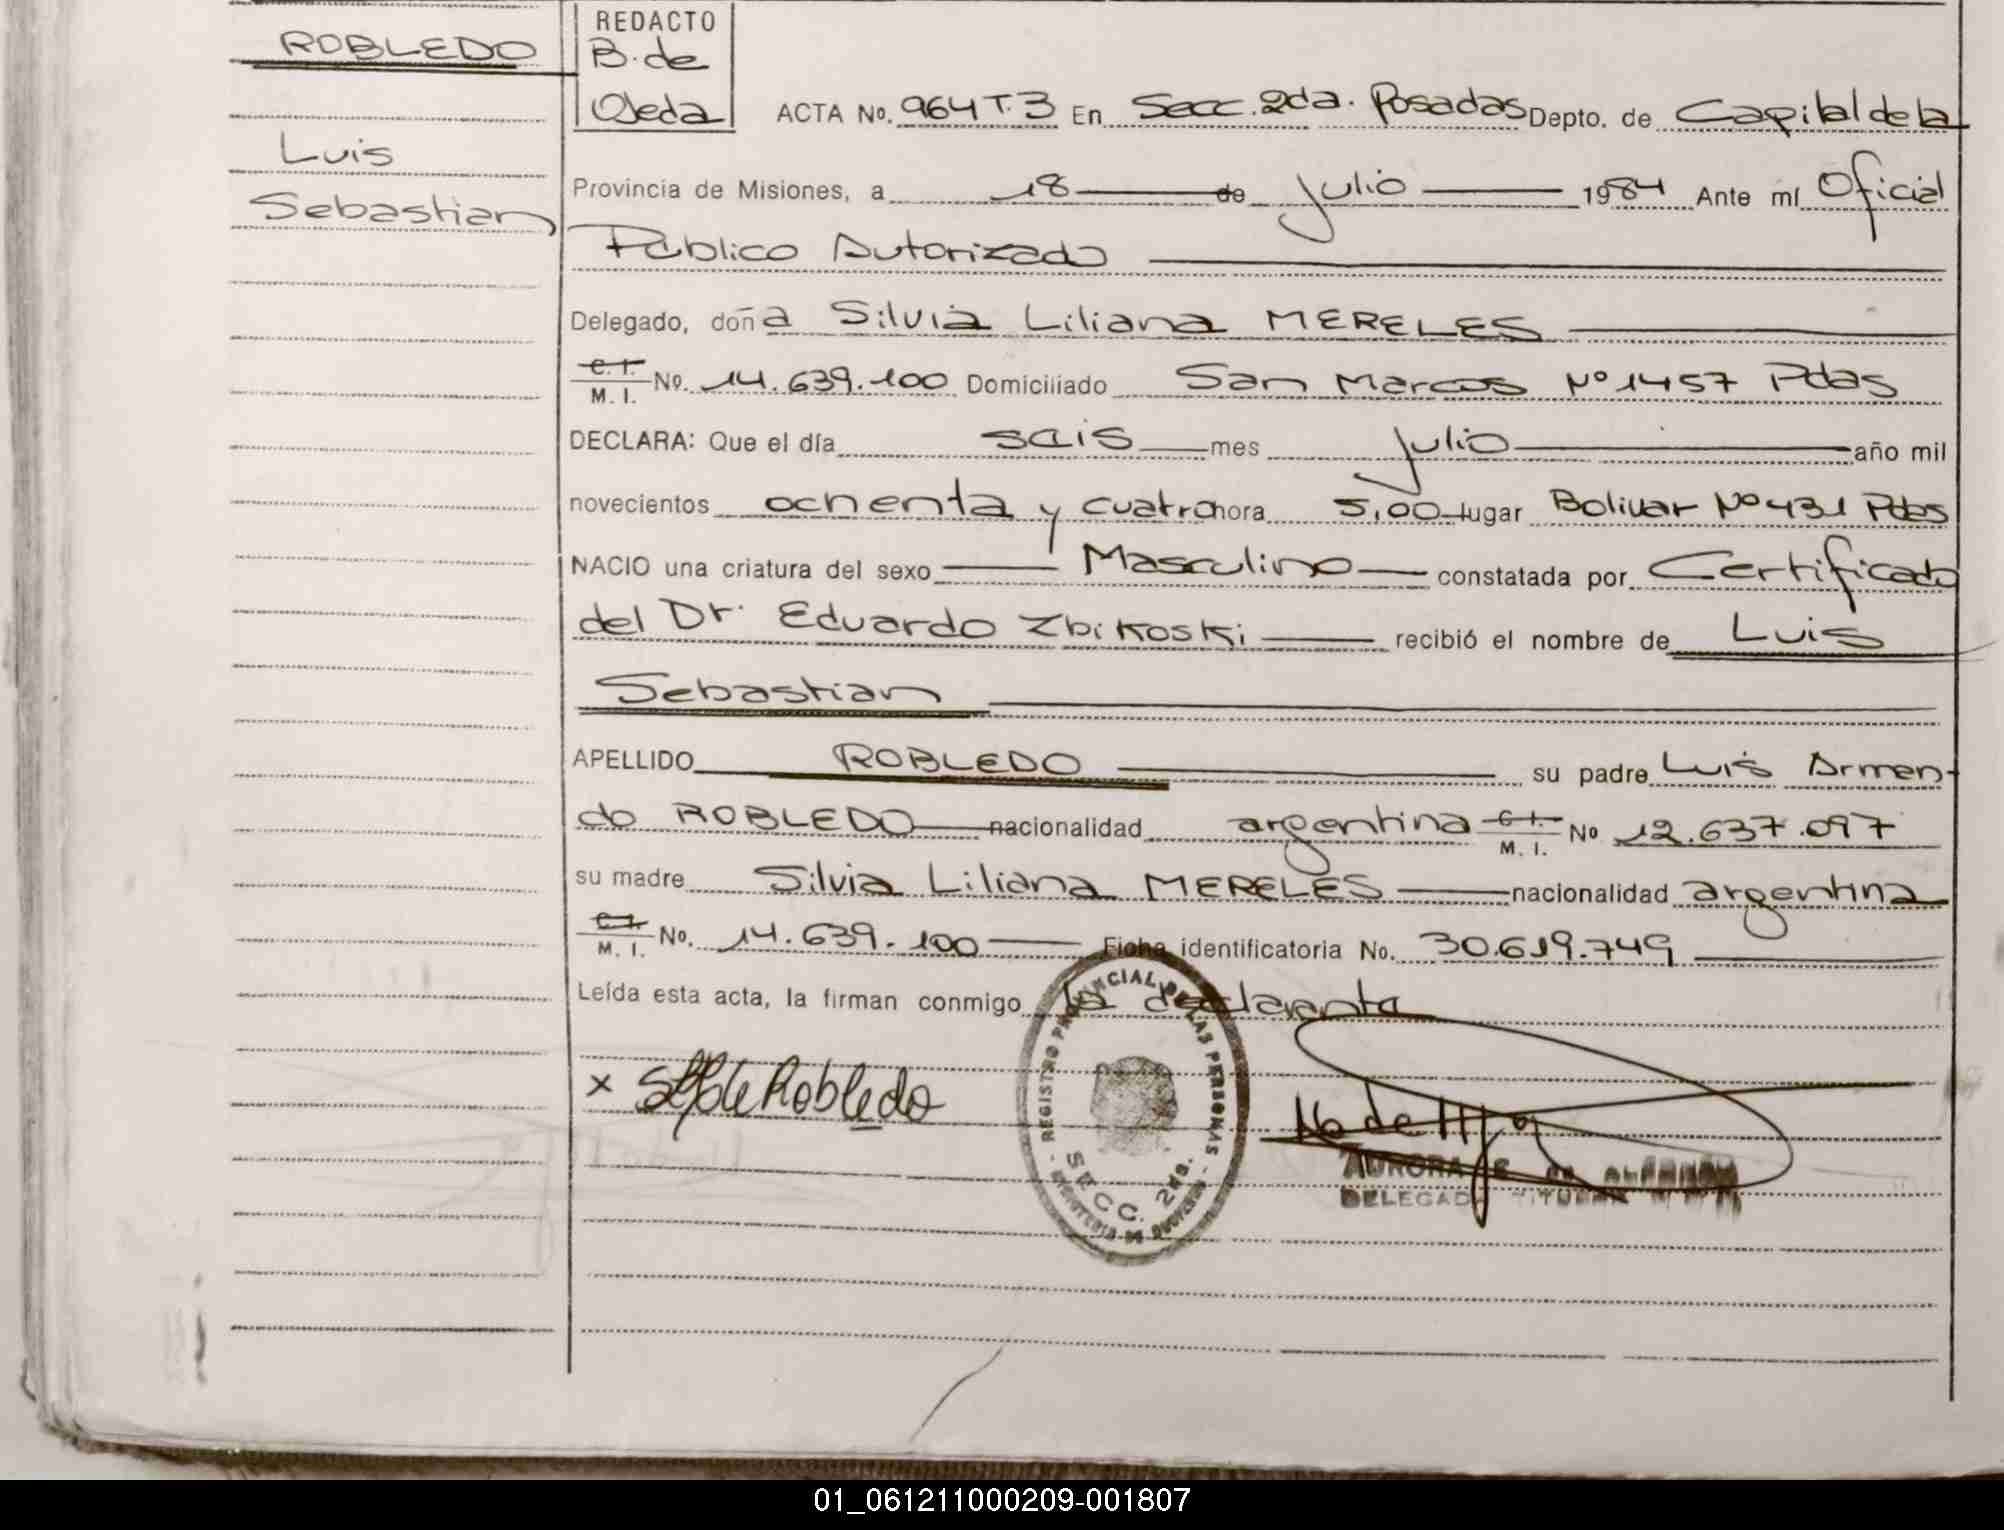 ROBLEDO
Luis
Sebastian
REDACTO
B. de
Ojeda
ACTA No. 964 T.3 En Secc. 2da. Posadas Depto. de Capital de la
Provincia de Misiones, a 18 de Julio 1984 Ante mí Oficial
Público Autorizado
Delegado, doña Silvia Liliana MERELES
C. I.
M. I. No. 14.639.100 Domiciliado San Marcos Nº 1457 Pdas
DECLARA: Que el día seis mes Julio año mil
novecientos ochenta y cuatro hora 5,00 lugar Bolivar Nº 431 Pdas
NACIO una criatura del sexo Masculino constatada por Certificado
del Dr. Eduardo Zbikoski recibió el nombre de Luis
Sebastian
APELLIDO ROBLEDO su padre Luis Armen-
do ROBLEDO nacionalidad argentina C. I.
M. I. No 12.637.097
su madre Silvia Liliana MERELES nacionalidad argentina
C. I.
M. I. No. 14.639.100 Ficha identificatoria No. 30.619.749
Leída esta acta, la firman conmigo la declarante
x de Robledo
REGISTRO PROVINCIAL DE LAS PERSONAS
SECC. 2da.
MINISTERIO DE GOBIERNO
AURORA E. de
DELEGADA TITULAR
01_061211000209-001807